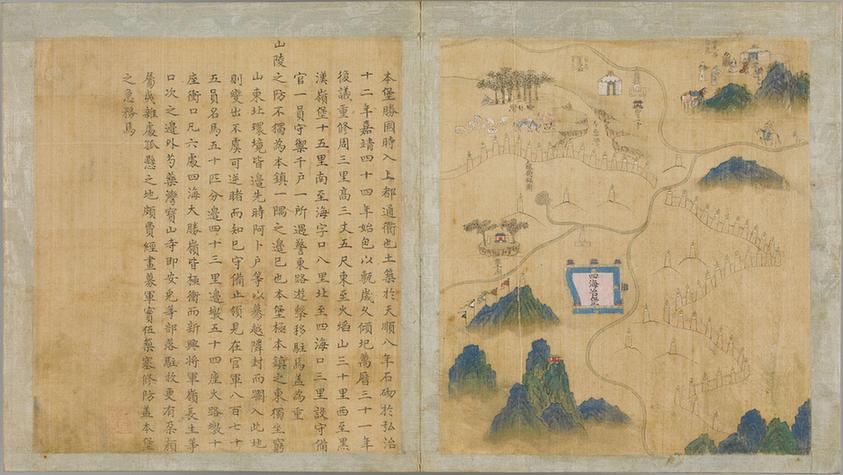 本堡勝國時入上都通衢也土築於天順八年石砌於弘治
十二年嘉靖四十四年始包以甎歲久傾圮萬曆三十一年
復議重修周三里高三丈五尺東至火焰山三十里西至黑
漢嶺堡十五里南至海字口八里北至四海口三里設守備
官一員守禦千戶一所遇警東路遊擊移駐焉蓋為重
山陵之防不獨為本鎮一隅之邊已也本堡極本鎮之東獨坐窮
山東北環境皆邊先時阿卜戶等以驀越隣封而闌入此地
則變出不虞可逆睹而知已守備止領見在官軍八百七十
五員名馬五十匹分邊四十三里邊墩五十四座火路墩十
座衝口凡六處四海大勝嶺皆極衝而新興將軍嶺長生等
口次之邊外芍藥灣寶山寺即安兔等部落駐牧更有朵顏
屬夷雜處孤懸之地頗費經畫募軍實伍築塞修防蓋本堡
之急務焉
四海冶堡